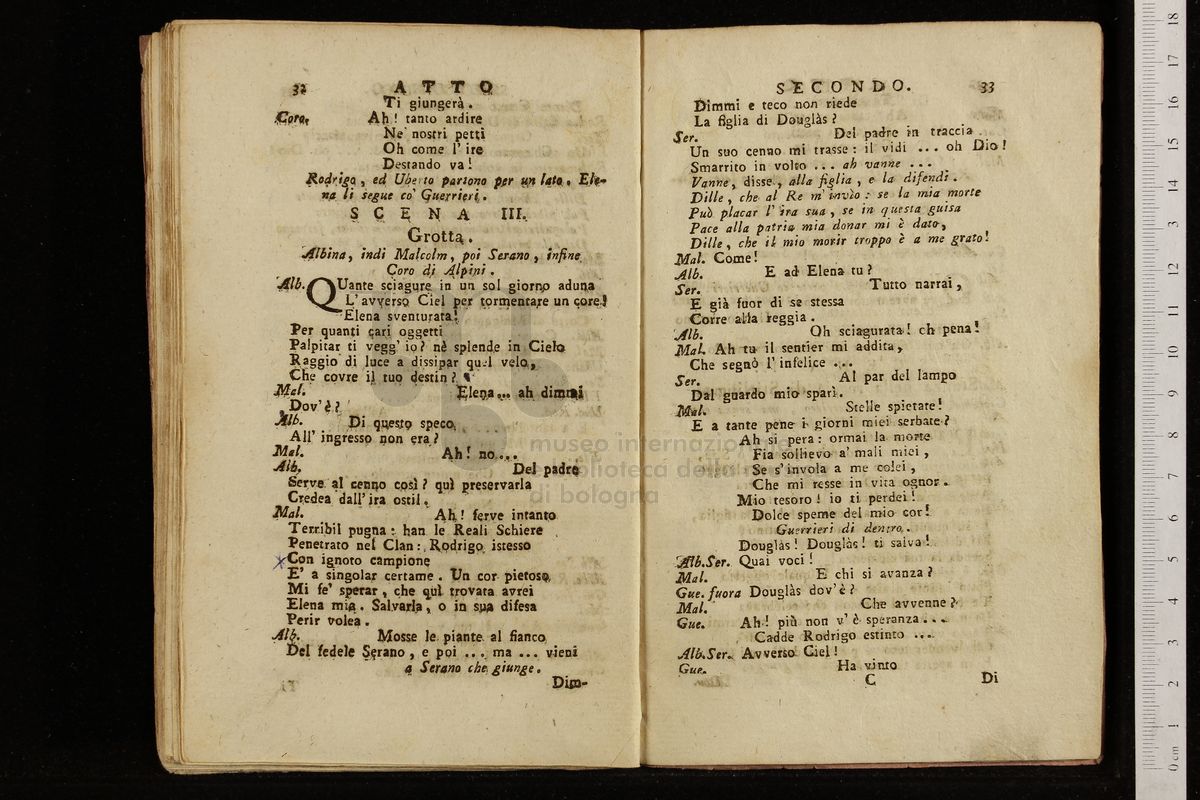 32 ATTO
Ti giungerà.
Coro. Ah! tanto ardire
Ne' nostri petti
Oh come l'ire
Destando va!
Rodrigo, ed Uberto partono per un lato. Ele-
na li segue co' Guerrieri.
SCENA III.
Grotta.
Albina, indi Malcolm, poi Serano, infine
Coro di Alpini.
Alb. QUante sciagure in un sol giorno aduna
L'avverso Ciel per tormentare un core!
Elena sventurata!
Per quanti cari oggetti
Palpitar ti vegg'io? nè splende in Cielo
Raggio di luce a dissipar quel velo,
Che covre il tuo destin?
Mal. Elena... ah dimmi
Dov'è?
Alb. Di questo speco
All'ingresso non era?
Mal. Ah! no...
Alb. Del padre
Serve al cenno così? quì preservarla
Credea dall'ira ostil.
Mal. Ah! ferve intanto
Terribil pugna: han le Reali Schiere
Penetrato nel Clan: Rodrigo istesso
Con ignoto campione
E' a singolar certame. Un cor pietoso
Mi fe' sperar, che quì trovata avrei
Elena mia. Salvarla, o in sua difesa
Perir volea.
Alb. Mosse le piante al fianco
Del fedele Serano, e poi ... ma ... vieni
a Serano che giunge.
Dim-
SECONDO. 33
Dimmi e teco non riede
La figlia di Douglàs?
Ser. Del padre in traccia
Un suo cenno mi trasse: il vidi ... oh Dio!
Smarrito in volto ... ah vanne ...
Vanne, disse, alla figlia, e la difendi.
Dille, che al Re m'invio: se la mia morte
Può placar l'ira sua, se in questa guisa
Pace alla patria mia donar mi è dato,
Dille, che il mio morir troppo è a me grato!
Mal. Come!
Alb. E ad Elena tu?
Ser. Tutto narrai,
E già fuor di se stessa
Corre alla reggia.
Alb. Oh sciagurata! oh pena!
Mal. Ah tu il sentier mi addita,
Che segnò l'infelice ...
Ser. Al par del lampo
Dal guardo mio sparì.
Mal. Stelle spietate!
E a tante pene i giorni miei serbate?
Ah si pera: ormai la morte
Fia sollievo a' mali miei,
Se s'invola a me colei,
Che mi resse in vita ognor.
Mio tesoro! io ti perdei!
Dolce speme del mio cor!
Guerrieri di dentro.
Douglàs! Douglàs! ti salva!
Alb.Ser. Quai voci!
Mal. E chi si avanza?
Gue. fuora Douglàs dov'è?
Mal. Che avvenne?
Gue. Ah! più non v'è speranza...
Cadde Rodrigo estinto ...
Alb.Ser. Avverso Ciel!
Gue. Ha vinto
C Di
museo internazionale
e biblioteca della
di bologna